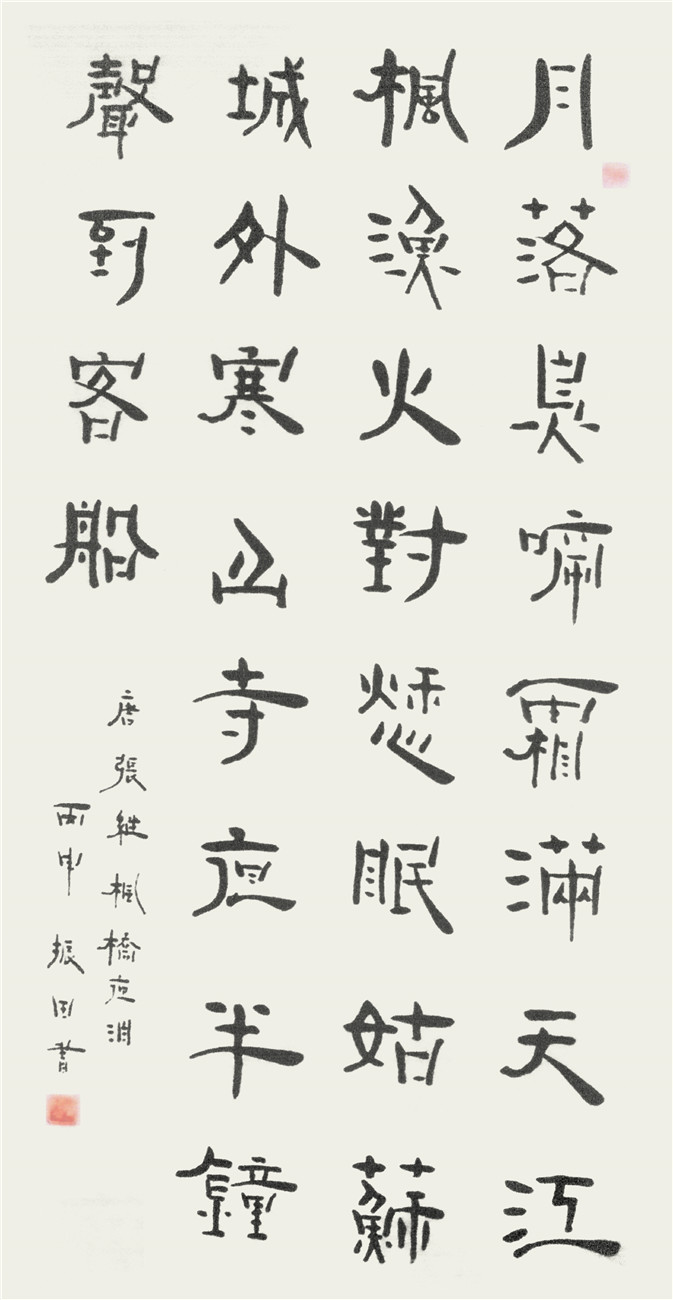 月落烏啼霜滿天江
楓漁火對愁眠姑蘇
城外寒山寺夜半鐘
聲到客船
唐張継楓橋夜泊
丙申振書